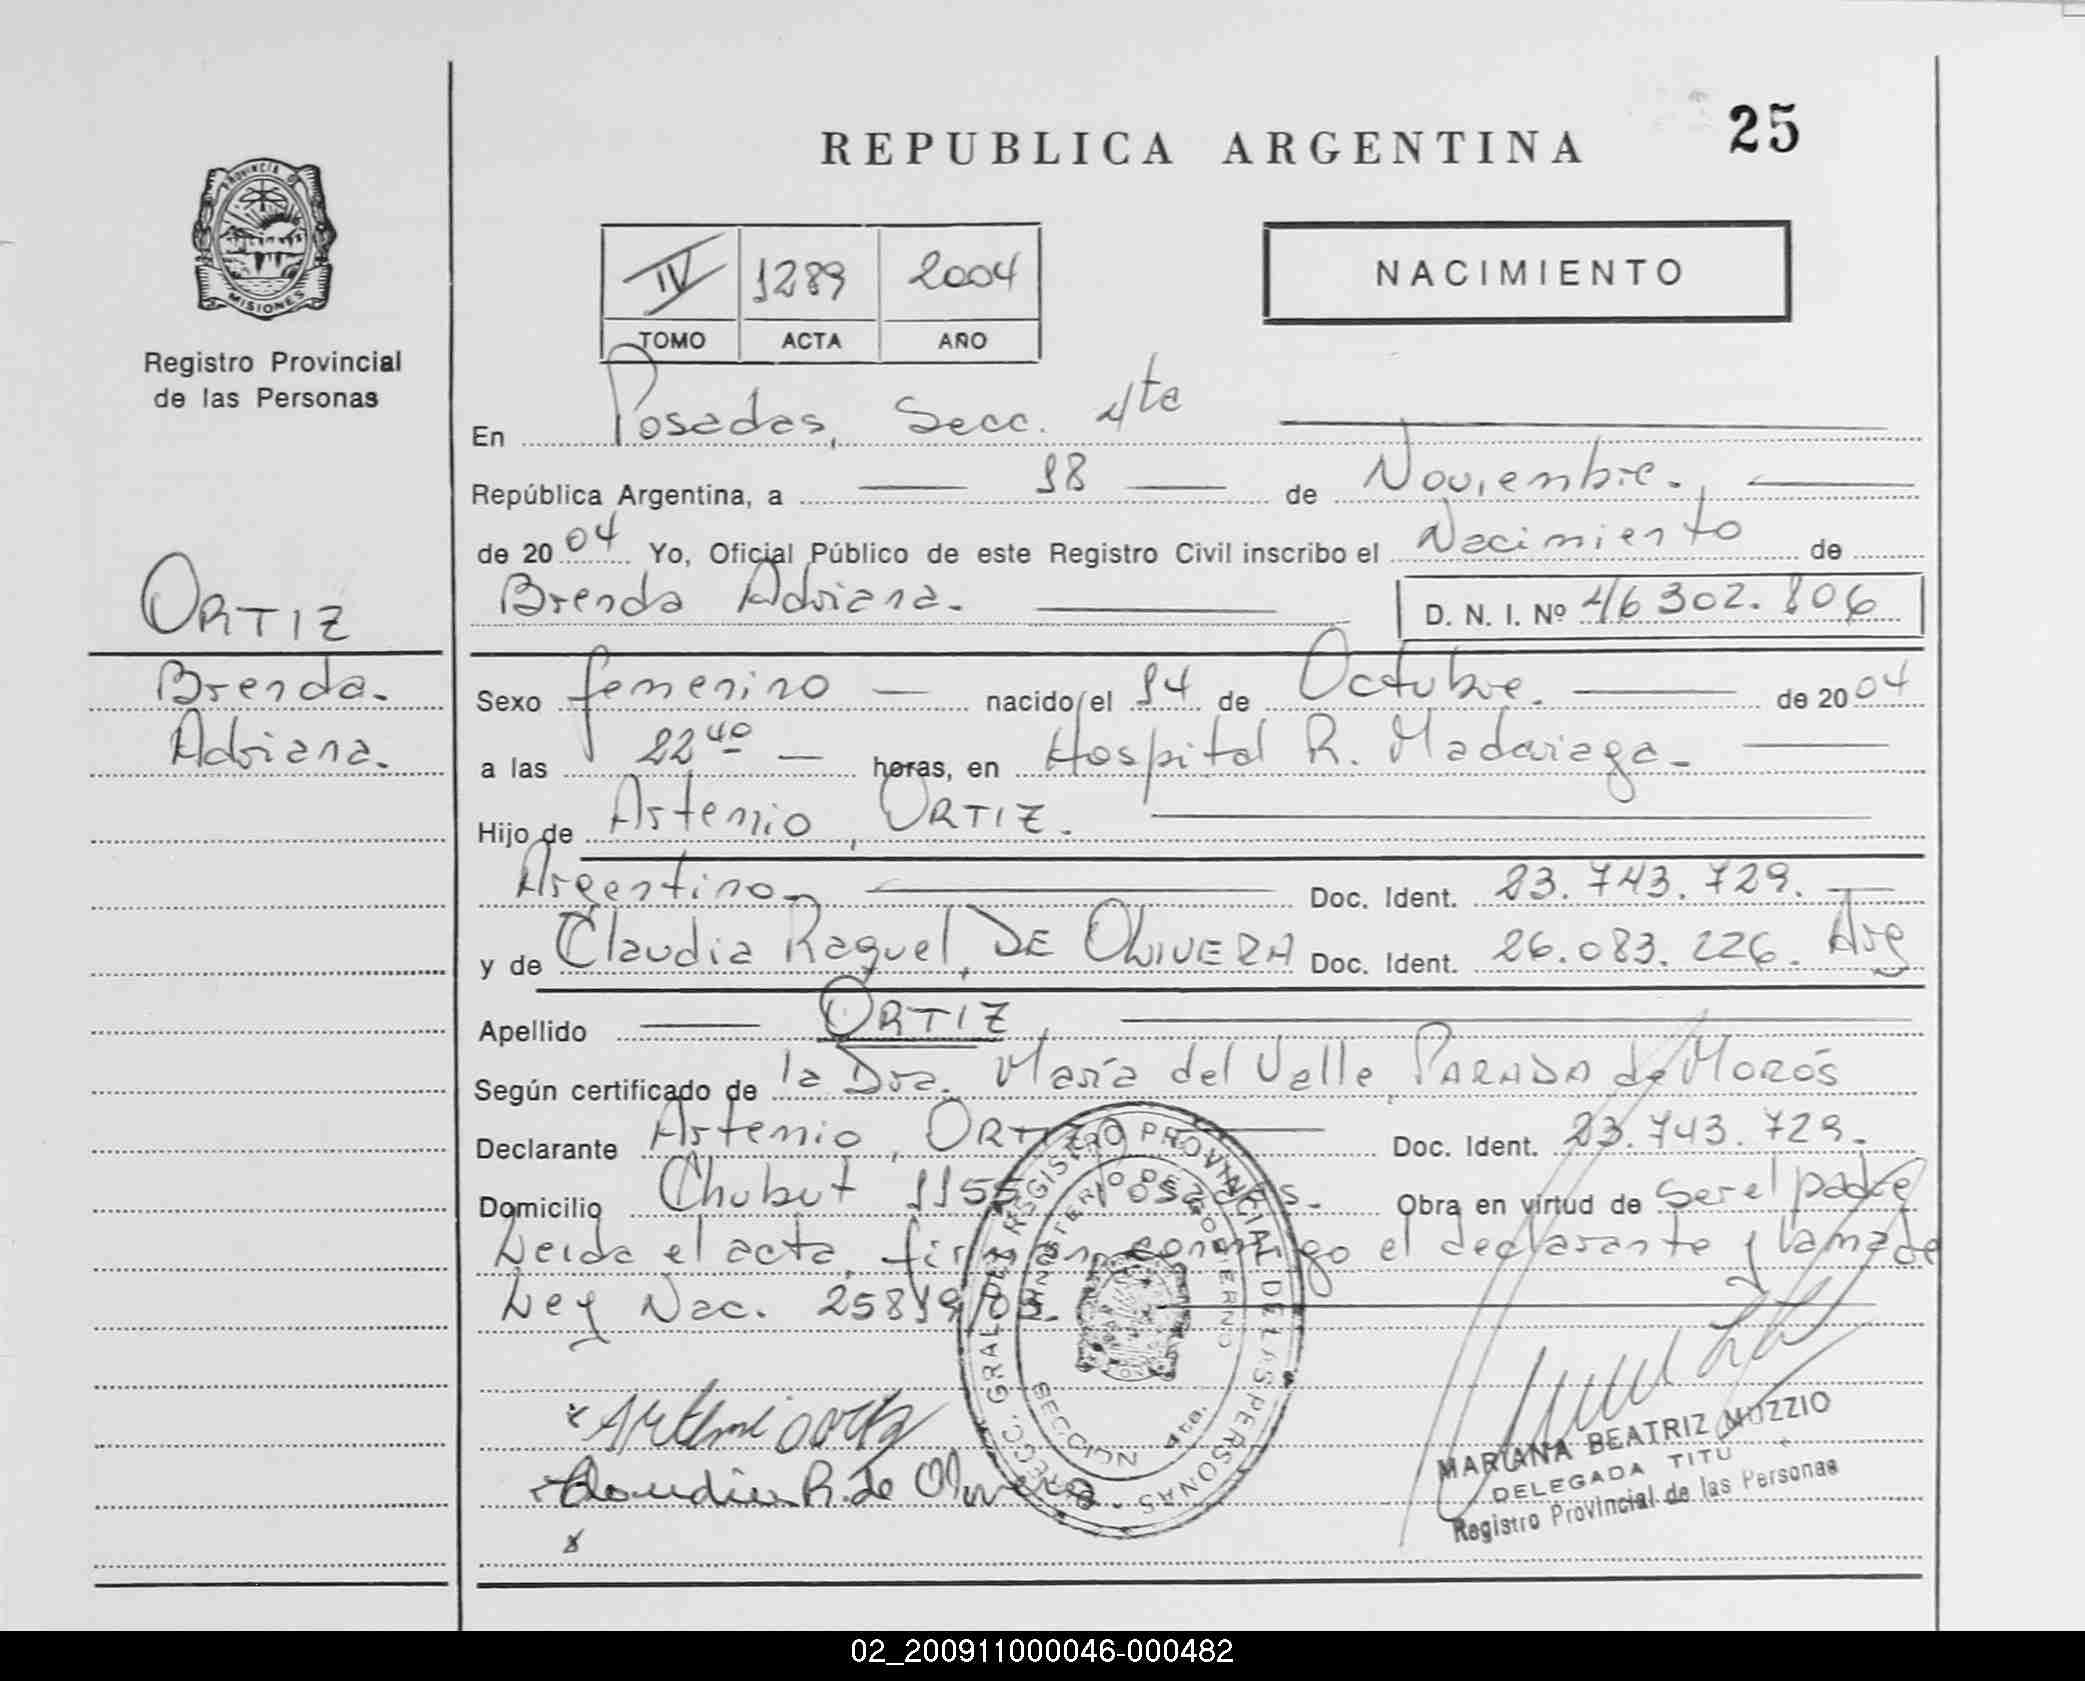 REPUBLICA ARGENTINA 25
PROVINCIA DE
MISIONES
Registro Provincial
de las Personas
IV 1289 2004
TOMO ACTA AÑO
NACIMIENTO
En Posadas, Secc. 4ta
República Argentina, a 18 de Noviembre.
de 2004 Yo, Oficial Público de este Registro Civil inscribo el Nacimiento de
Brenda Adriana. D. N. I. Nº 46302.806
ORTIZ
Brenda.
Adriana.
Sexo femenino nacido el 14 de Octubre. de 2004
a las 22 40 horas, en Hospital R. Madariaga
Hijo de Artemio, ORTIZ.
Argentino Doc. Ident. 23.743.729.
y de Claudia Raquel, DE OLIVERA Doc. Ident. 26.083.226. Arg
Apellido ORTIZ
Según certificado de la Dra. María del Valle PARADA de MOROS
Declarante Artemio, ORTIZ Doc. Ident. 23.743.729.
Domicilio Chubut 1155 Posadas. Obra en virtud de ser el padre
Leida el acta, firman conmigo el declarante y la madre
Ley Nac. 25819/03.
DIRECC. GRAL. DEL REGISTRO PROVINCIAL DE LAS PERSONAS
MINISTERIO DE GOBIERNO
SECCION 4ta.
x Artemio ortiz
Claudia R. de Olivera
x
MARIANA BEATRIZ MUZZIO
DELEGADA TITU
Registro Provincial de las Personas
02_200911000046-000482